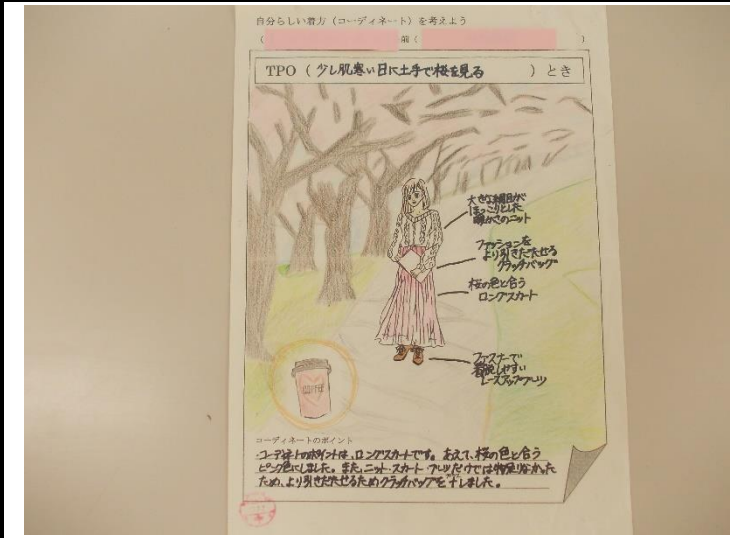 自分らしい着方（コーディネート）を考えよう
TPO（少し肌寒い日に土手で桜を見る）とき
大きな編目が
ほっこりとした
暖かさのニット
ファッションを
より引きたたせる
クラッチバッグ
桜の色と合う
ロングスカート
ファスナーで
着脱しやすい
レースアップブーツ
コーディネートのポイント
コーデネートのポイントは、ロングスカートです。あえて、桜の色と合う
ピンク色にしました。また、ニット・スカート・ブーツだけでは物足りなかった
ため、より引きたたせるためクラッチバッグを
しました。